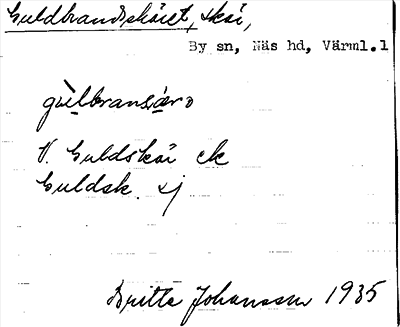 Guldbrandskäret, skär,
By sn, Näs hd, Värml.l
V. Guldskär ek
Guldsk. sj
Britta Johansson 1935